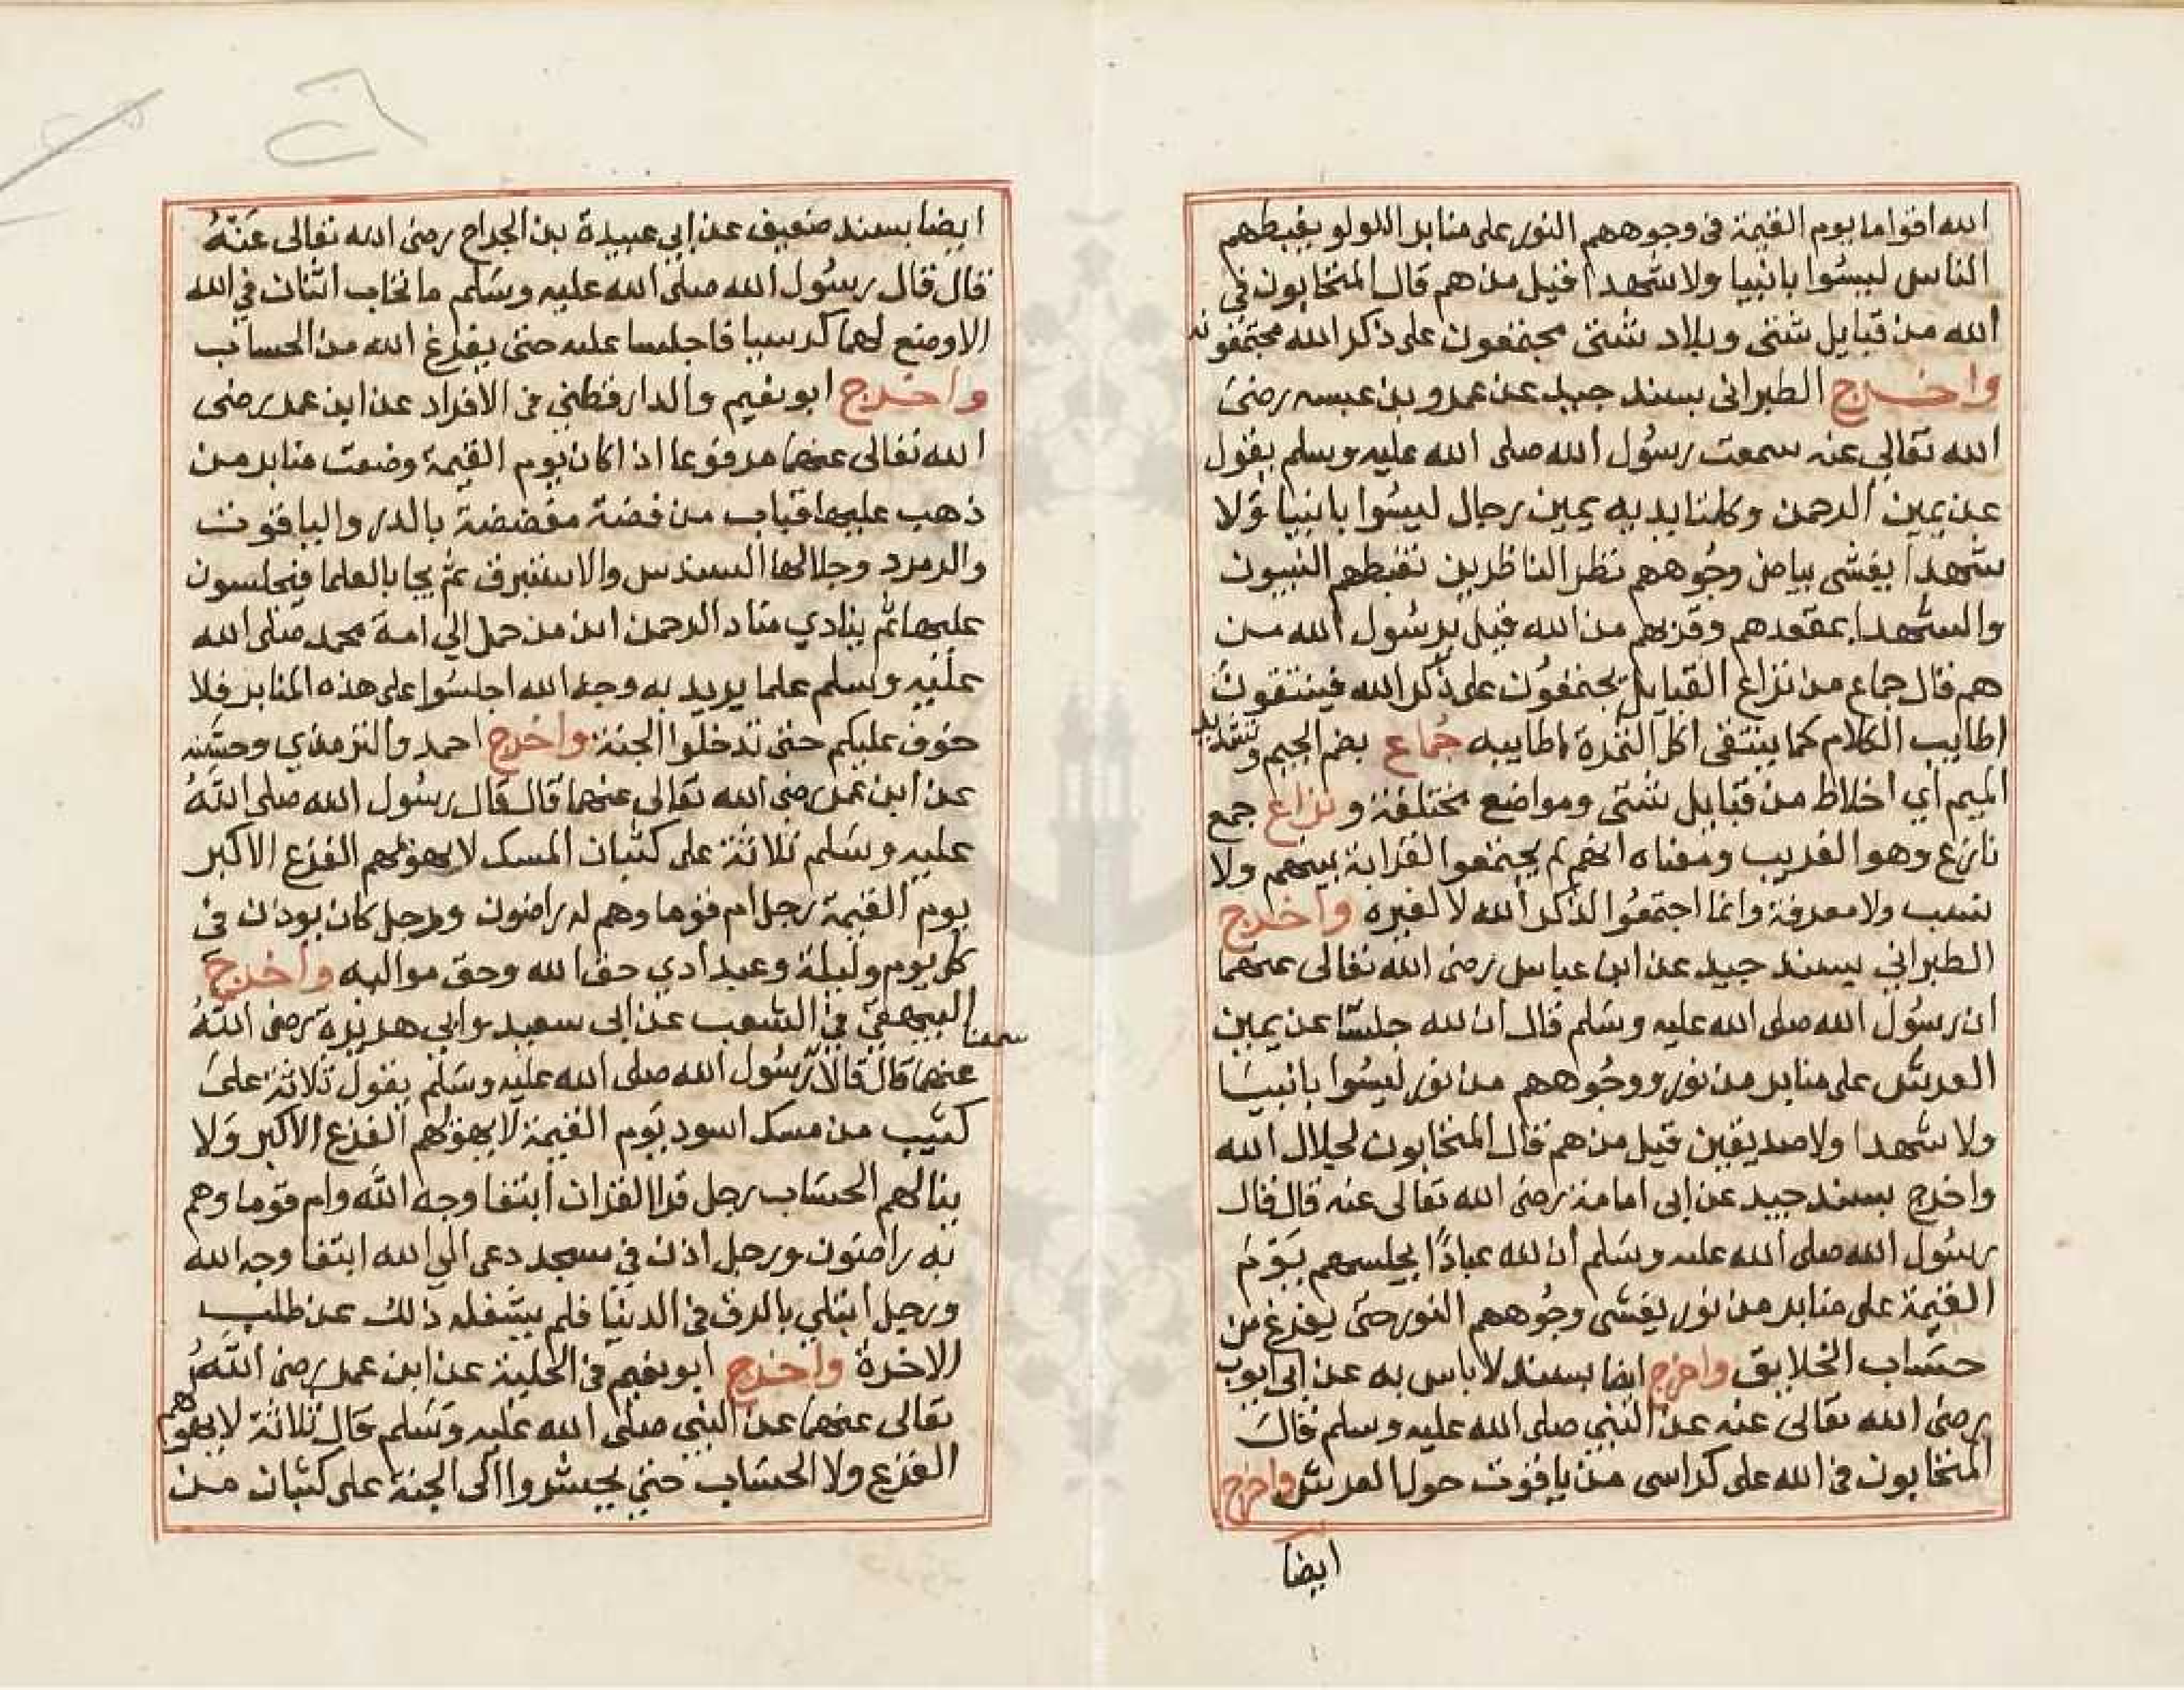 الله اقواما يوم القيمة في وجوههم النور على منابر اللولو يغبطهم
الناس ليسوا بانبيا ولا شهدا قيل من هم قال المتحابون في
الله من قبايل شتى وبلاد شتى يجتمعون على ذكر الله
واخرج الطبراني بسند جيد عن عمرو بن عبسه رضى
الله تعالى عنه سمعت رسول الله صلى الله عليه وسلم يقول
عن يمين الرحمن وكلتا يديه يمين رجال ليسوا بانبيا ولا
شهدا يغشى بياض وجوههم نظر الناظرين تغبطهم النبيون
والشهدا بمقعدهم وقربهم من الله قيل يرسول الله من
هم قال جماع من نزاع القبايل يجتمعون على ذكر الله فينتقون
اطايب الكلام كما ينتقى اكل التمرة اطايبه جُماع بضم الجيم وتشديد
الميم اي اخلاط من قبايل شتى ومواضع مختلفة و نزاع جمع
نازع وهوا الغريب ومعناه انهم لم يجتمعوا القرابة بينهم ولا
نسب ولا معرفة وانما اجتمعوا لذكر الله لا لغيره واخرج
الطبراني بسند جيد عن ابن عباس رضى الله تعالى عنهما
ان رسول الله صلى الله عليه وسلم قال ان لله جلسا عن يمين
العرش على منابر من نور ووجوههم من نور ليسوا بانبيا
ولا شهدا ولا صديقين قيل من هم قال المتحابون لجلال الله
واخرج بسند جيد عن ابى امامة رضى الله تعالى عنه قال قال
رسول الله صلى الله عليه وسلم ان لله عبادًا يجلسهم يوم
القيمة على منابر من نور يغشى وجوههم النور حتى يفرغ من
حساب الخلايق واخرج ايضا بسند لا باس به عن ابى ايوب
رضى الله تعالى عنه عن النبى صلى الله عليه وسلم قال
المتحابون في الله على كراسى من ياقوت حول العرش واخرج
ايضا
ايضا بسند ضعيف عن ابي عبيدة بن الجراح رضى الله تعالى عنه
قال قال رسول الله صلى الله عليه وسلم ما تحاب اثنان في الله
الا وضع لهما كرسيا فاجلسا عليه حتى يفرغ الله من الحساب
واخرج ابو نعيم والدارقطني في الافراد عن ابن عمر رضى
الله تعالى عنهما مرفوعا اذا كان يوم القيمة وضعت منابر من
ذهب عليها قباب من فضة مفضضة بالدر والياقوت
والزمرد وجلالها السندس والاستبرق ثم يجا بالعلما فيجلسون
عليها ثم ينادي مناد الرحمن اين من حمل الي امة محمد صلى الله
عليه وسلم علما يريد به وجه الله اجلسوا على هذه المنابر فلا
خوف عليكم حتى تدخلوا الجنة واخرج احمد والترمذي وحسنه
عن ابن عمر رضى الله تعالى عنهما قال قال رسول الله صلى الله
عليه وسلم ثلاثة على كثبان المسك لا يهولهم الفزع الاكبر
يوم القيمة رجل ام قوما وهم له راضون ورجل كان يوذن في
كل يوم وليلة وعبد ادي حق الله وحق مواليه واخرج
البيهقي في الشعب عن ابى سعيد وابي هريرة رضى الله
عنهما قال قالا سمعنا رسول الله صلى الله عليه وسلم يقول ثلاثة على
كثيب من مسك اسود يوم القيمة لا يهولهم الفزع الاكبر ولا
ينالهم الحساب رجل قرا القران ابتغا وجه الله وام قوما وهم
به راضون ورجل اذن في مسجد دعى الى الله ابتغا وجه الله
ورجل ابتلي بالرق في الدنيا فلم يشغله ذلك عن طلب
الاخرة واخرج ابو نعيم في الحلية عن ابن عمر رضى الله
تعالى عنهما عن النبي صلى الله عليه وسلم قال ثلاثة لا يهولهم
الفزع ولا الحساب حتي يحشروا الى الجنة على كثبان من